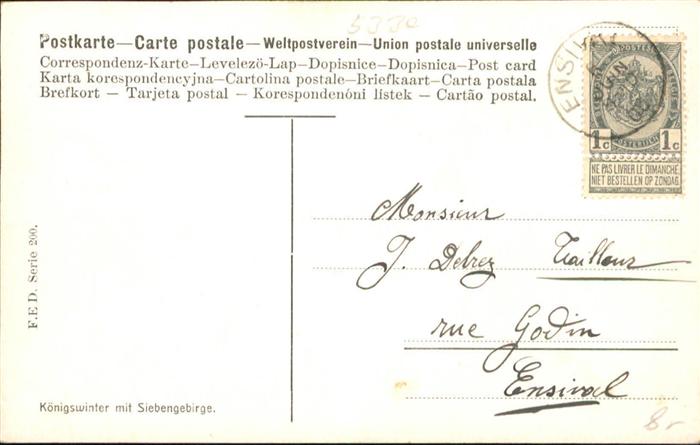 5330
Postkarte—Carte postale—Weltpostverein—Union postale universelle
Correspondenz-Karte—Levelező-Lap—Dopisnice—Dopisnica—Post card
Karta korespondencyjna—Cartolina postale—Briefkaart—Carta postala
Brefkort — Tarjeta postal — Korespondenóni listek — Cartão postal.
ENSIVAL
POSTES
POSTERIJEN
1c 1c
NE PAS LIVRER LE DIMANCHE
NIET BESTELLEN OP ZONDAG
Monsieur
J. Delrez Tailleur
rue Godin
Ensival
F.E.D. Serie 200.
Königswinter mit Siebengebirge.